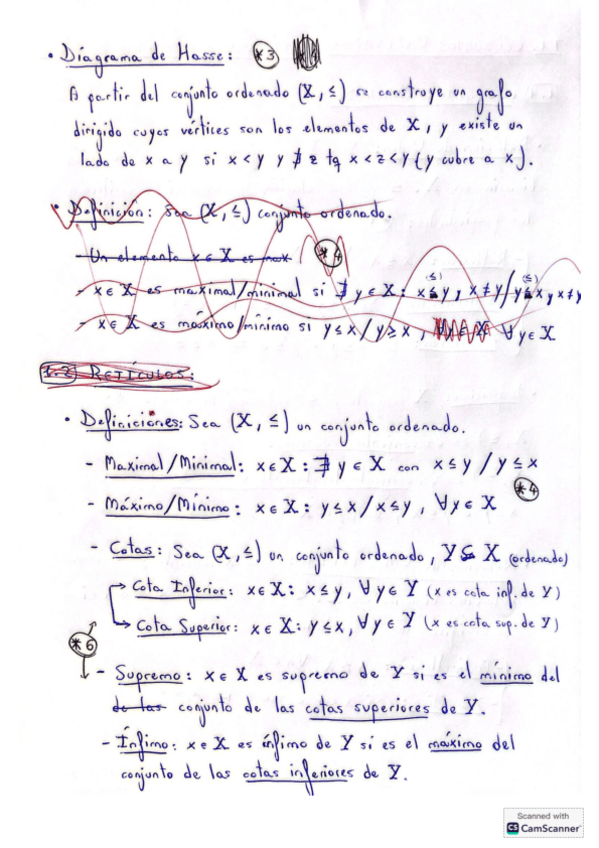 • Diagrama de Hasse: *3
A partir del conjunto ordenado (X, ≤) se construye un grafo
dirigido cuyos vértices son los elementos de X, y existe un
lado de x a y si x < y y ∄ z tq x < z < y (y cubre a x).
• Definición: Sea (X, ≤) conjunto ordenado.
- Un elemento x ∈ X es max
*4
- x ∈ X es maximal/minimal si ∄ y ∈ X: x ≤ y, x ≠ y / y ≤ x, x ≠ y
(≤) (≤)
- x ∈ X es máximo/mínimo si y ≤ x / y ≥ x, ∀ y ∈ X ∀ y ∈ X
1.2 RETÍCULOS:
• Definiciones: Sea (X, ≤) un conjunto ordenado.
- Maximal/Minimal: x ∈ X: ∄ y ∈ X con x ≤ y / y ≤ x
*4
- Máximo/Mínimo: x ∈ X: y ≤ x / x ≤ y, ∀ y ∈ X
- Cotas: Sea (X, ≤) un conjunto ordenado, Y ⊆ X (ordenado)
→ Cota Inferior: x ∈ X: x ≤ y, ∀ y ∈ Y (x es cota inf. de Y)
→ Cota Superior: x ∈ X: y ≤ x, ∀ y ∈ Y (x es cota sup. de Y)
*6
- Supremo: x ∈ X es supremo de Y si es el mínimo del
de las conjunto de las cotas superiores de Y.
- Ínfimo: x ∈ X es ínfimo de Y si es el máximo del
conjunto de las cotas inferiores de Y.
Scanned with
CS CamScanner